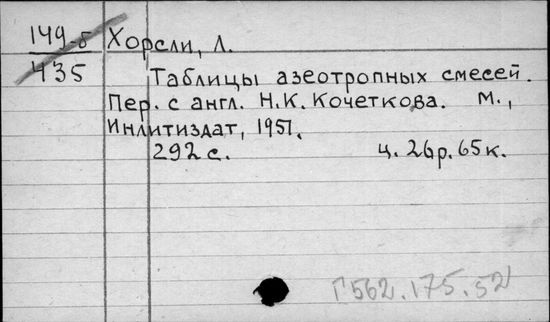 149-б Хорсли, Л.
435
Таблицы азеотропных смесей.
Пер. с англ. Н.К. Кочеткова. М.,
Инлитиздат, 1951.
292 с. ц. 26р. 65к.
Г562.175.52